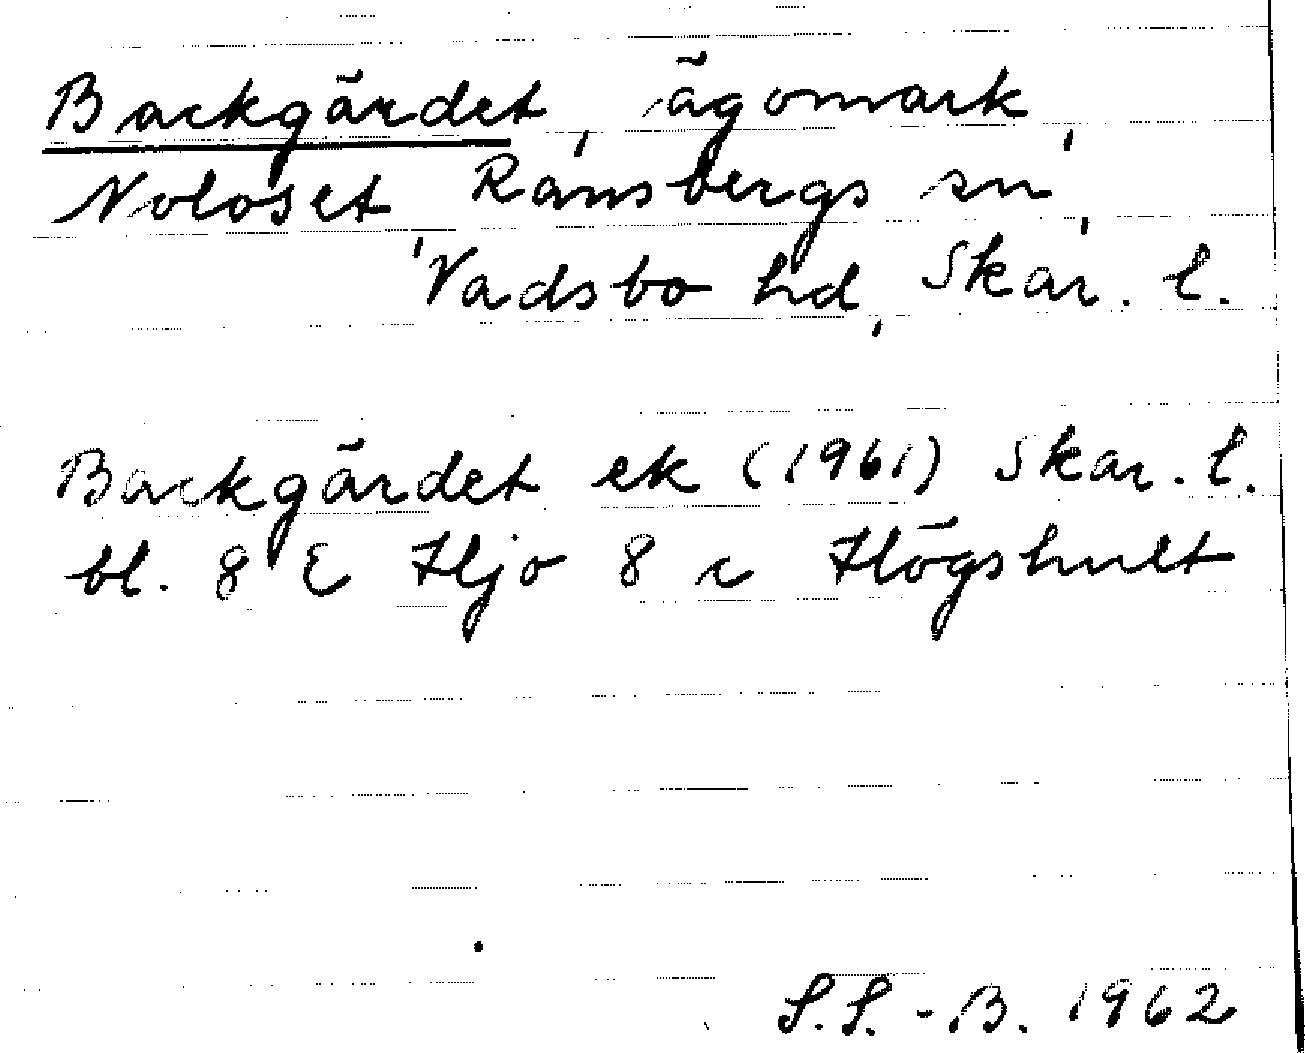 Backgärdet, ägomark,
Noloset, Ransbergs sn,
Vadsbo hd, Skar. l.
Backgärdet ek (1961) Skar. l.
bl. 8 E Hjo 8 c Högshult
S.S.-B. 1962